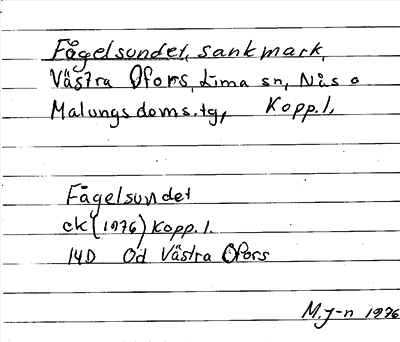 Fågelsundet, sankmark,
Västra Ofors, Lima sn, Nås o
Malungs doms.tg, Kopp.l,
Fågelsundet
ek (1976) Kopp.l.
14D Od Västra Ofors
M.j-n 1976